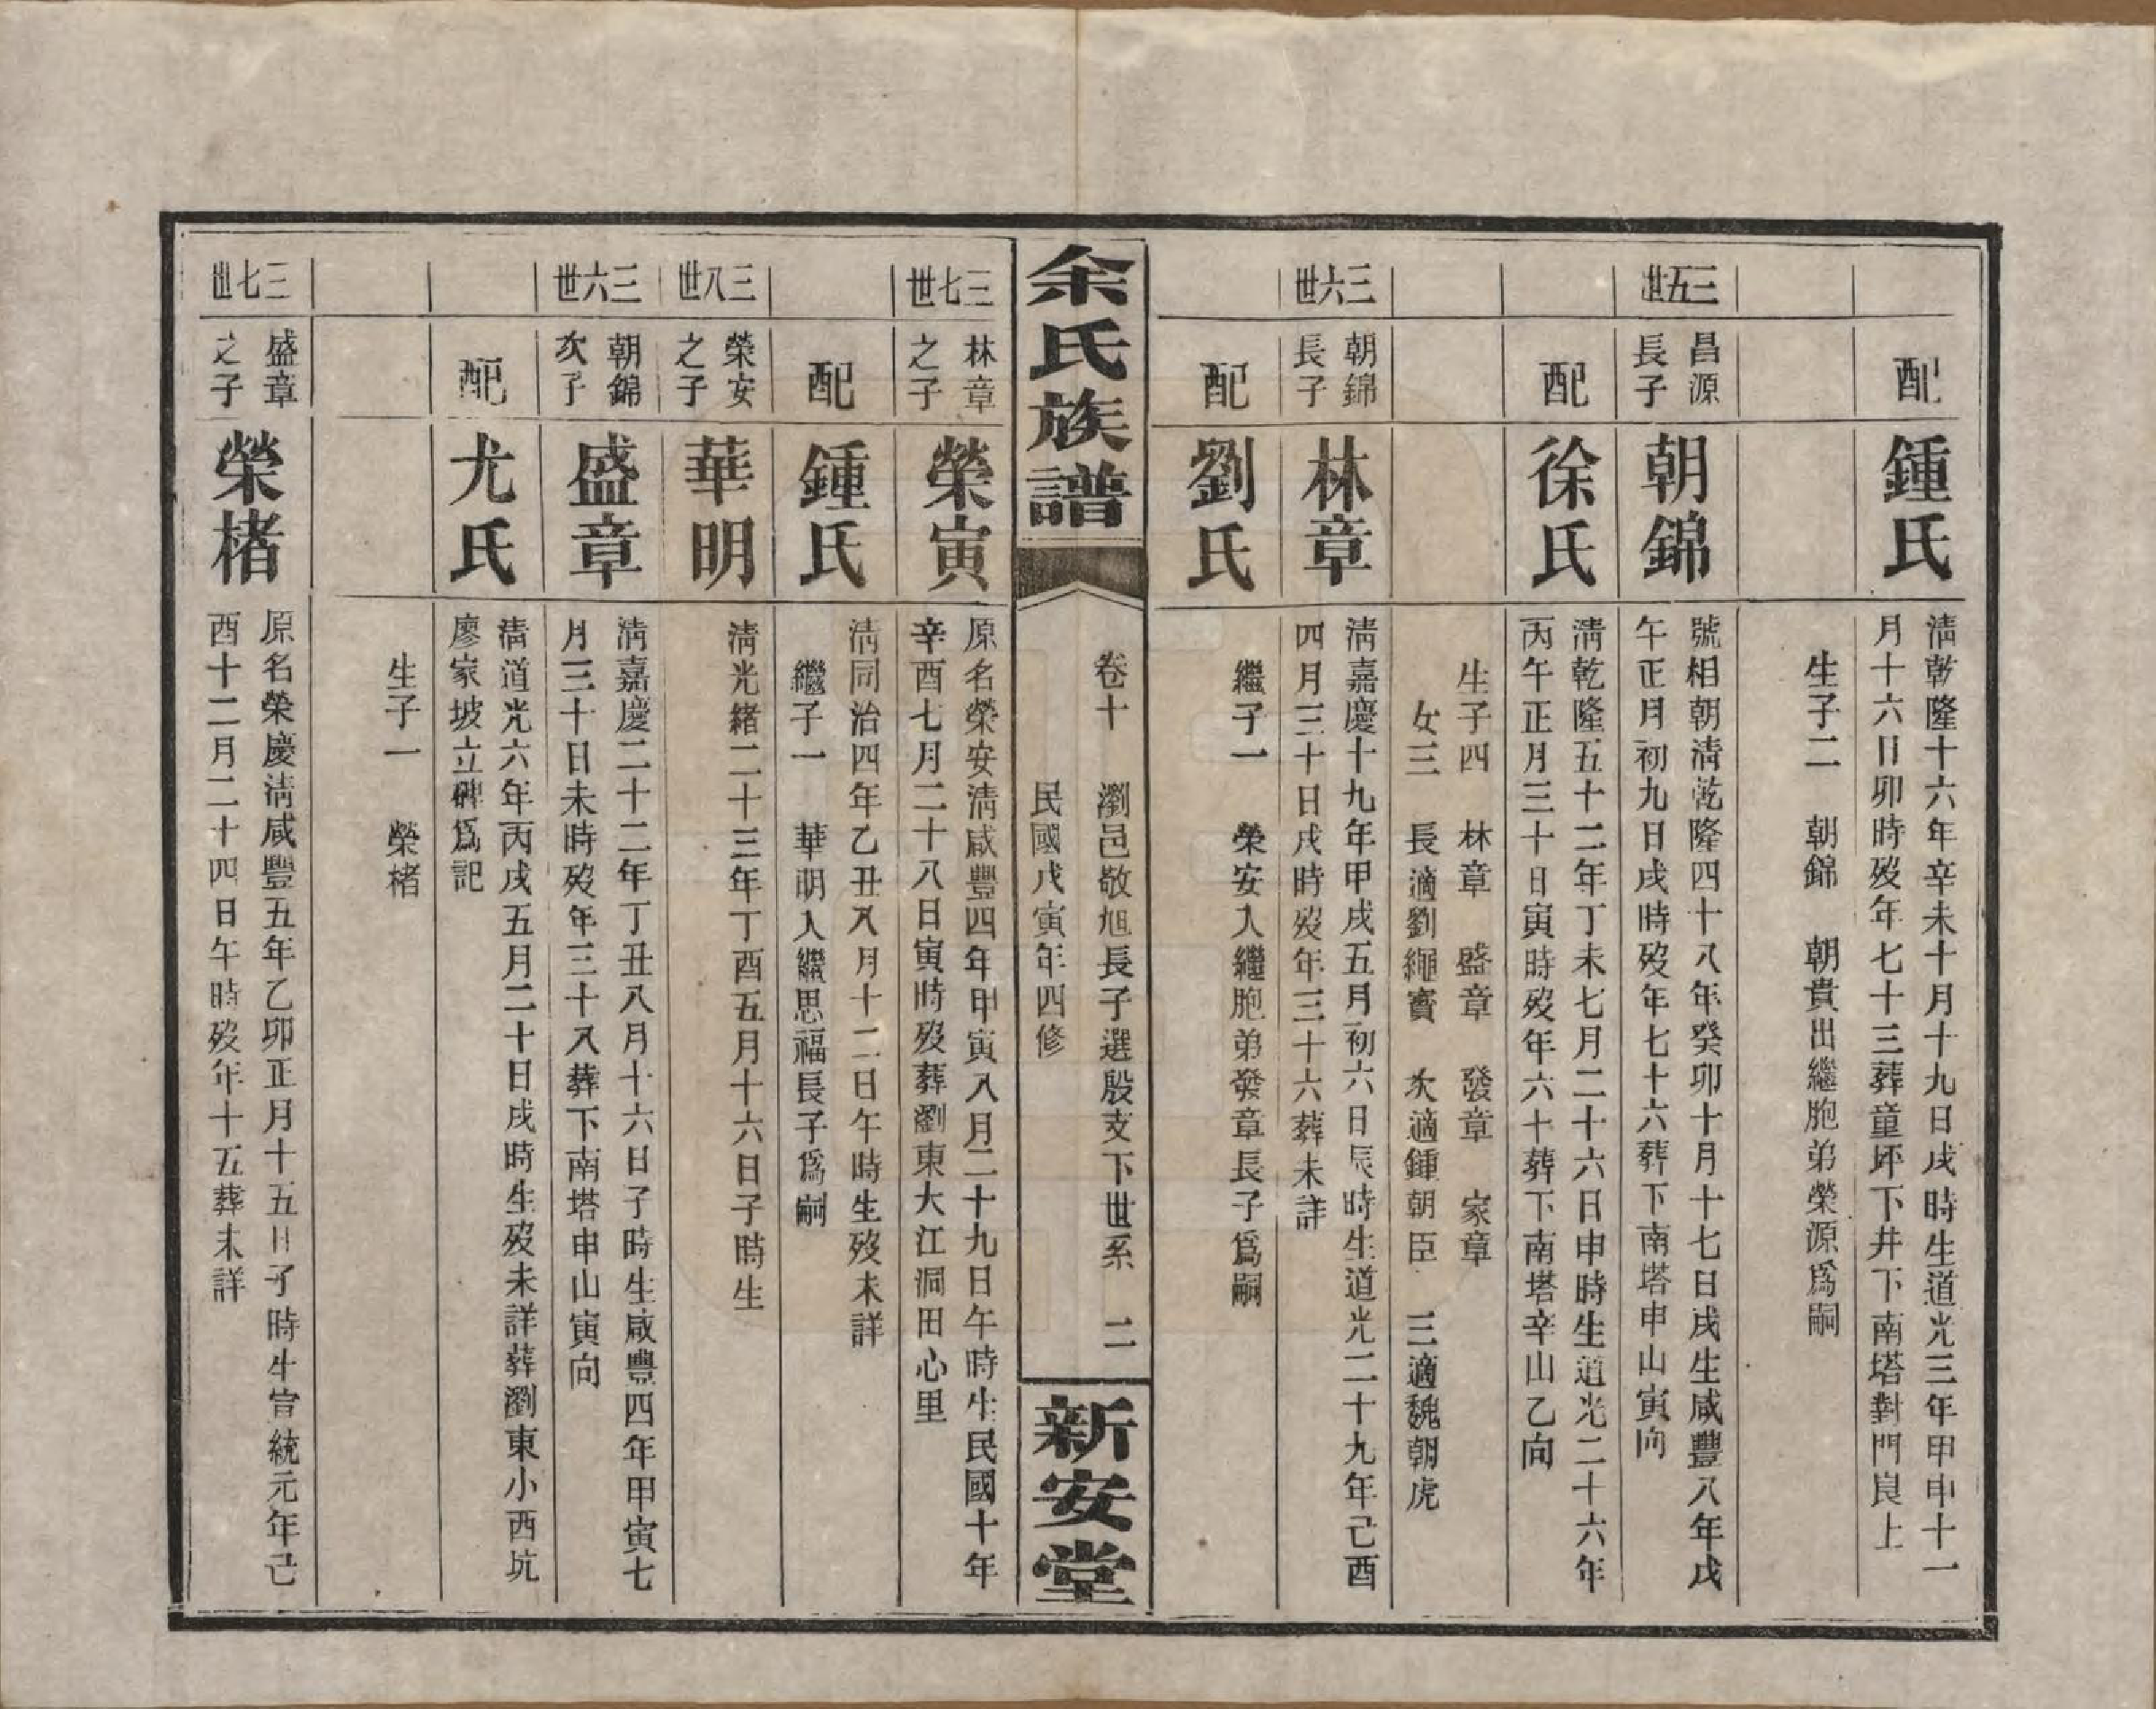 配
鍾氏
清乾隆十六年辛未十月十九日戌時生道光三年甲申十一
月十六日卯時歿年七十三葬童坪下井下南塔對門艮上
生子二　朝錦　朝貴出繼胞弟榮源爲嗣
三五世
昌源
長子
朝錦
號相朝清乾隆四十八年癸卯十月十七日戌生咸豐八年戊
午正月初九日戌時歿年七十六葬下南塔申山寅向
配
徐氏
清乾隆五十二年丁未七月二十六日申時生道光二十六年
丙午正月三十日寅時歿年六十葬下南塔辛山乙向
生子四　林章　盛章　發章　家章
女三　長適劉繩寶　次適鍾朝臣　三適魏朝虎
三六世
朝錦
長子
林章
清嘉慶十九年甲戌五月初六日辰時生道光二十九年己酉
四月三十日戌時歿年三十六葬未詳
配
劉氏
繼子一　榮安入繼胞弟發章長子爲嗣
余氏族譜
卷十　瀏邑敬旭長子選殷支下世系　二
民國戊寅年四修
新安堂
三七世
林章
之子
榮寅
原名榮安清咸豐四年甲寅八月二十九日午時生民國十年
辛酉七月二十八日寅時歿葬劉東大江洞田心里
配
鍾氏
清同治四年乙丑八月十二日午時生歿未詳
繼子一　華明入繼思福長子爲嗣
三八世
榮安
之子
華明
清光緒二十三年丁酉五月十六日子時生
三六世
朝錦
次子
盛章
清嘉慶二十二年丁丑八月十六日子時生咸豐四年甲寅七
月三十日未時歿年三十八葬下南塔申山寅向
配
尤氏
清道光六年丙戌五月二十日戌時生歿未詳葬瀏東小西坑
廖家坡立碑爲記
生子一　榮楮
三七世
盛章
之子
榮楮
原名榮慶清咸豐五年乙卯正月十五日子時生宣統元年己
酉十二月二十四日午時歿年十五葬未詳